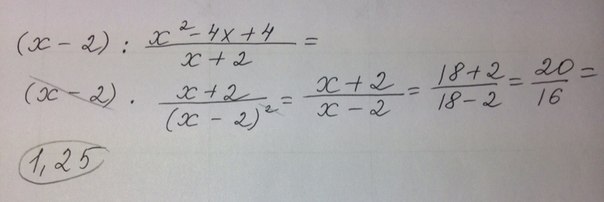 (x - 2) : \frac{x^2 - 4x + 4}{x + 2} =
(x - 2) · \frac{x + 2}{(x - 2)^2} = \frac{x + 2}{x - 2} = \frac{18 + 2}{18 - 2} = \frac{20}{16} =
1,25